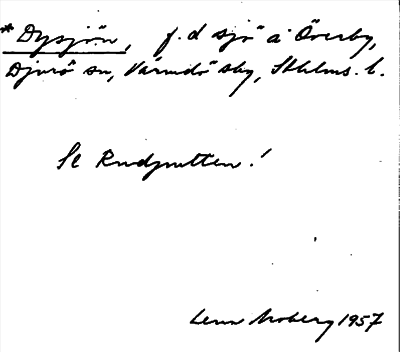 * Dysjön, f.d sjö å Överby,
Djurö sn, Värmdö skg, Sthlms. l.
Se Rudputten!
Lena Moberg 1957